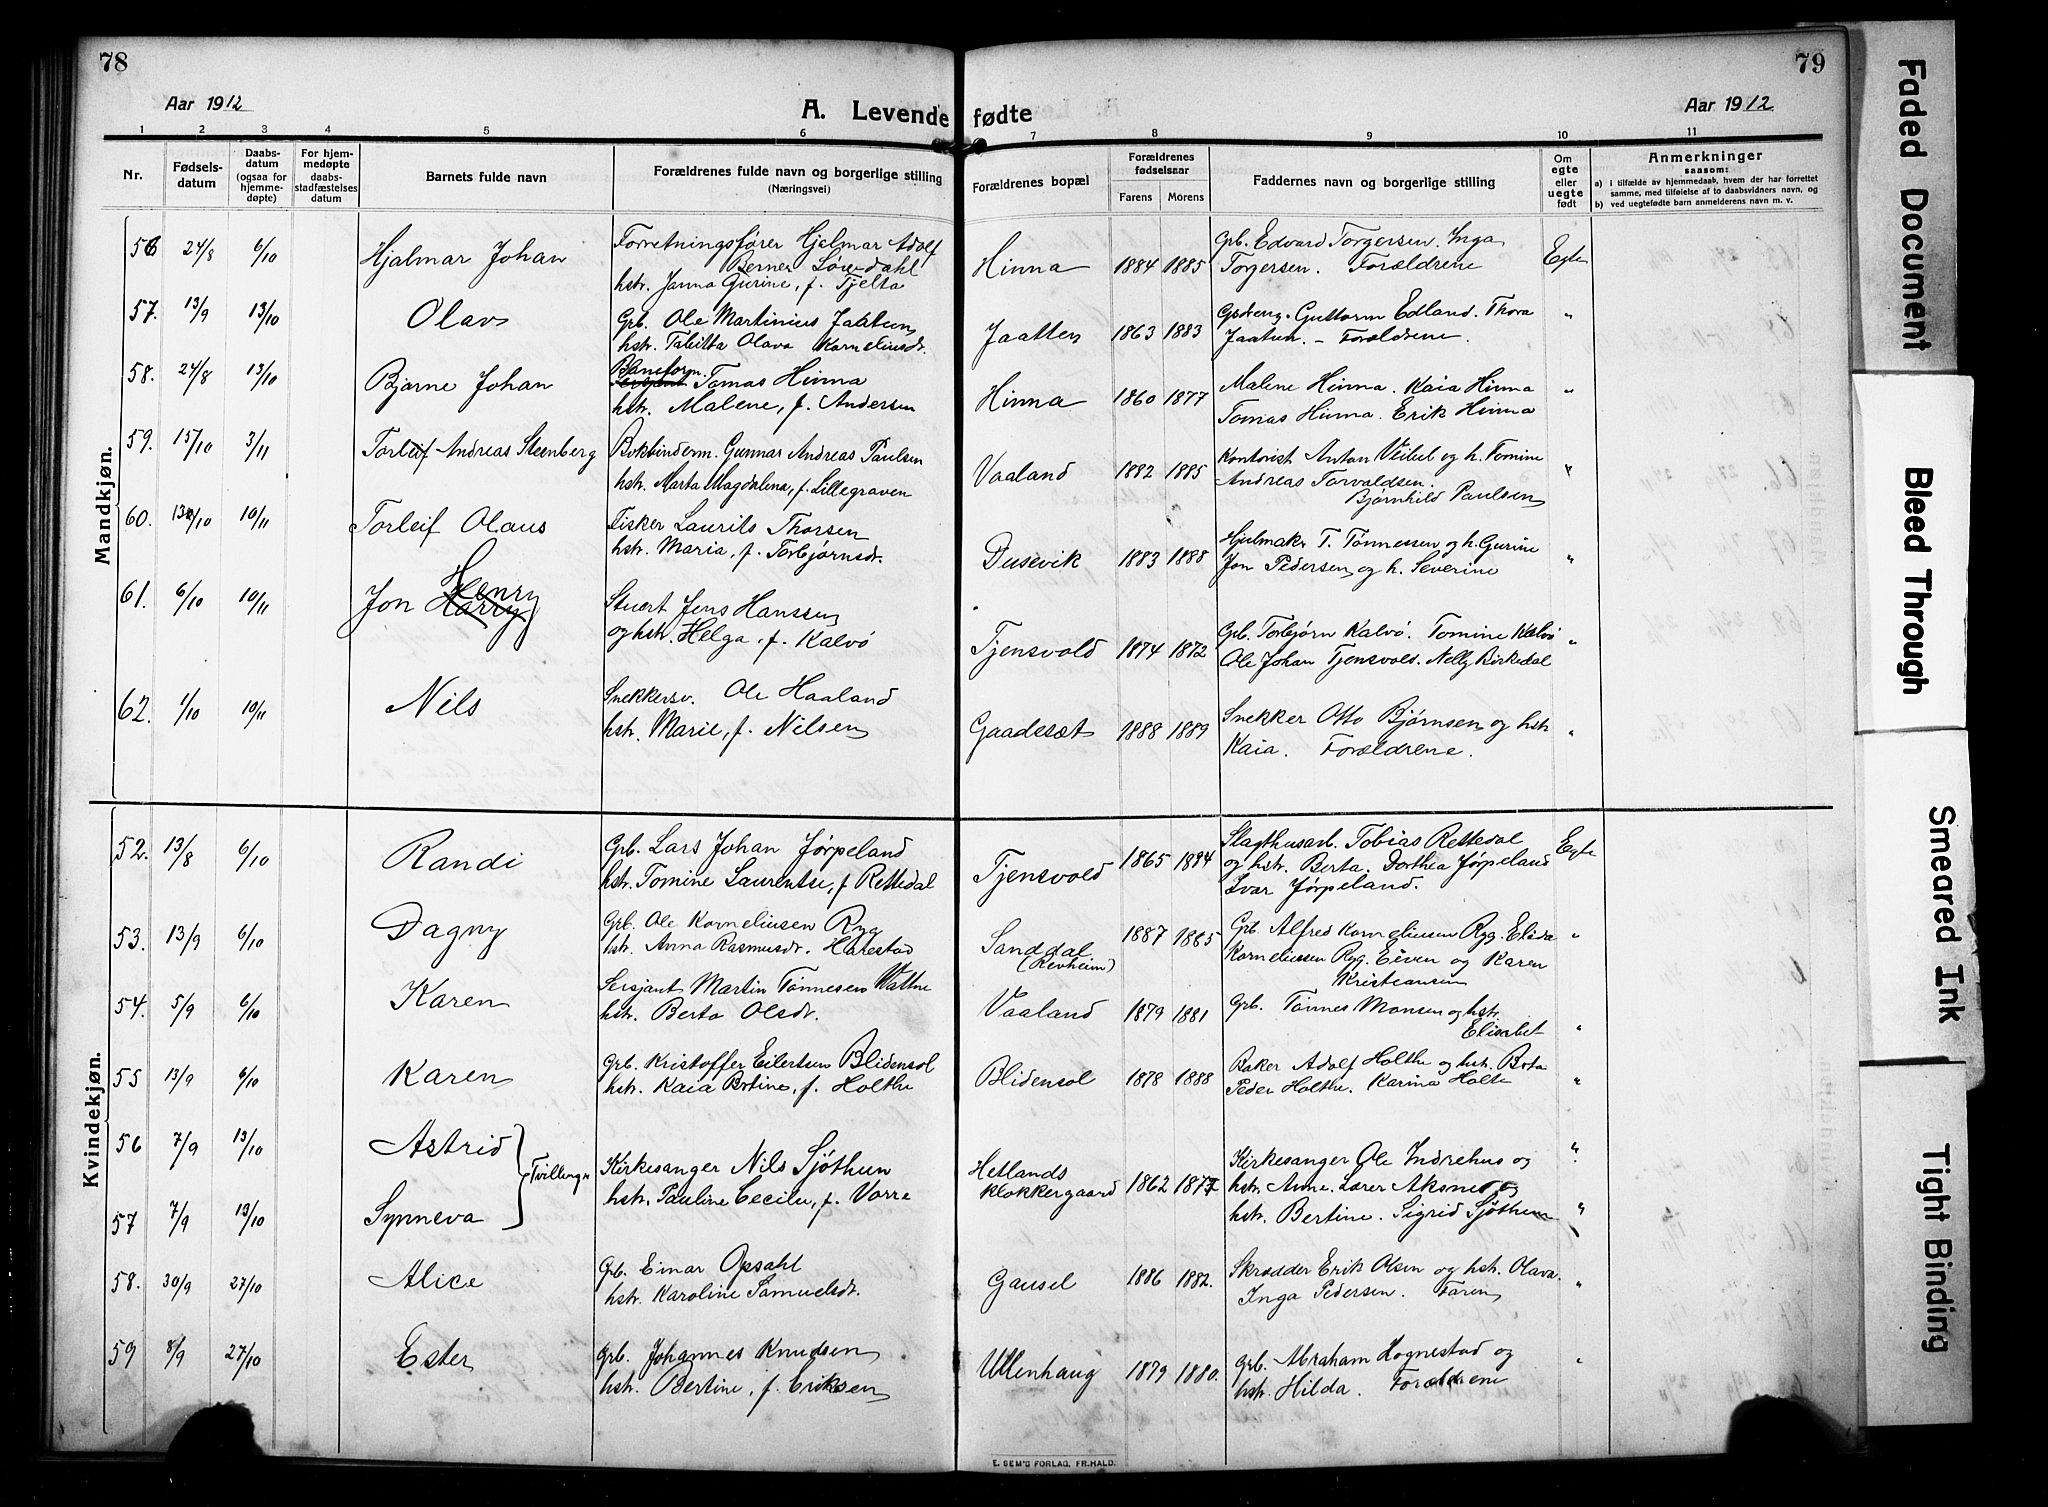 78
Aar 1912
A. Levende fødte
Aar 1912
79
1 2 3 4 5 6 7 8 9 10 11
Nr.
Fødsels-
datum
Daabs-
datum
(ogsaa for
hjemme-
døpte)
For hjem-
medøpte
daabs-
stadfæstelses
datum
Barnets fulde navn
Forældrenes fulde navn og borgerlige stilling
(Næringsvei)
Forældrenes bopæl
Forældrenes
fødselsaar
Farens Morens
Faddernes navn og borgerlige stilling
Om
egte
eller
uegte
født
Anmerkninger
saasom:
a) i tilfælde av hjemmedaab, hvem der har forrettet
samme, med tilføielse af to daabsvidners navn, og
b) ved uegtefødte barn anmelderens navn m. v.
Mandkjøn.
56 24/8 6/10 Hjalmar Johan
Forretningsfører Hjalmar Adolf
Berner Løvedahl
hstr. Janna Gurine, f. Tjelta
Hinna 1884 1885
Grb. Edvard Torgersen. Inga
Torgersen. Forældrene
Egte
57. 13/9 13/10 Olav
Grb. Ole Martinius Jaatun
hstr. Tabitta Olava Korneliusdr.
Jaatten 1863 1883
Gdeng. Guttorm Edland. Thora
Jaatun. – Forældrene.
"
58. 24/8 13/10 Bjarne Johan
Baneform.
Sersjant Tomas Hinna
hstr. Malene, f. Andersen
Hinna 1860 1877
Malene Hinna. Kaia Hinna
Tomas Hinna. Erik Hinna
"
59. 15/10 3/11 Torleif Andreas Steenberg
Bokbinderm. Gunnar Andreas Paulsen
hstr. Marta Magdalena, f. Lillegraven
Vaaland 1882 1885
Kontorist Anton Veibel og h. Tomine
Andreas Torvaldsen.
Bjørnhild Paulsen
"
60. 13/10 10/11 Torleif Olaus
Fisker Laurits Thorsen
hstr. Maria, f. Torbjørnsdr.
Dusevik 1883 1888
Hjulmak. T. Tønnessen og h. Gurine
Jon Pedersen og h. Severine
"
61. 6/10 10/11 Jon Harry Henry
Stuert Jens Hanssen
og hstr. Helga, f. Kalvø
Tjensvold 1874 1872
Grb. Torbjørn Kalvø. Tomine Kalvø
Ole Johan Tjensvold. Nelly Birkedal
"
62. 1/10 10/11 Nils
Snekkersv. Ole Haaland
hstr. Marie, f. Nilsen
Gaadesæt 1888 1889
Snekker Otto Bjørnsen og hstr
Kaia. Forældrene.
"
Kvindekjøn.
52. 13/8 6/10 Randi
Grb. Lars Johan Jørpeland
hstr. Tomine Laurentse, f Rettedal
Tjensvold 1865 1884
Slagthusarb. Tobias Rettedal
og hstr. Berta. Dorthea Jørpeland
Ivar Jørpeland.
Egte
53. 13/9 6/10 Dagny
Grb. Ole Korneliusen Ryg
hstr. Anna Rasmusdr. Harestad
Sanddal
(Revheim)
1887 1885
Grb. Alfred Korneliusen Ryg. Elida
Korneliussen Ryg. Eiven og Karen
Kristiansen
"
54. 5/9 6/10 Karen
Sersjant Martin Tønnesen Vatne
hstr. Berta Olsdr.
Vaaland 1879 1881
Grb. Tønnes Monsen og hstr.
Elisabet
"
55 13/9 6/10 Karen
Grb. Kristoffer Eilertsen Blidensol
hstr. Kaia Bertine, f. Holthe
Blidensol 1878 1888
Baker Adolf Holthe og hstr. Berta
Peder Holthe. Karina Holte
"
56 7/9 13/10 Astrid
Tvillinger
Kirkesanger Nils Sjøthun
hstr. Pauline Cecilie, f. Vorre
Hetlands
klokkergaard
1862 1877
Kirkesanger Ole Indrehus og
hstr. Anne. Lærer Aksnes og
hstr. Bertine. Sigrid Sjøthun
"
57 7/9 13/10 Synneva
"
58. 30/9 27/10 Alice
Grb. Einar Opsahl
hstr. Karoline Samuelsdr.
Gausel 1886 1882.
Skrædder Erik Olsen og hstr. Olava.
Inga Pedersen. Faren
"
59 8/9 27/10 Ester
Grb. Johannes Knudsen
hstr. Bertine, f. Eriksen
Ullenhaug 1879 1880.
Grb. Abraham Hognestad og
hstr. Hilda. Forældrene
"
E. SEM'S FORLAG, FR.HALD.
Faded Document
Bleed Through
Smeared Ink
Tight Binding